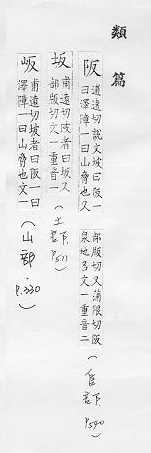 類篇
阪
遠切說文坡者曰阪一
曰澤障一曰山脅也又
部版切又蒲限切阪
泉地名文一重音二
坂
甫遠切坡者曰坂又
部版切文一重音一
(土部下 P.511)
岅
甫遠切坡者曰岅一曰
澤障一曰山脅也文一
(山部.P.330)